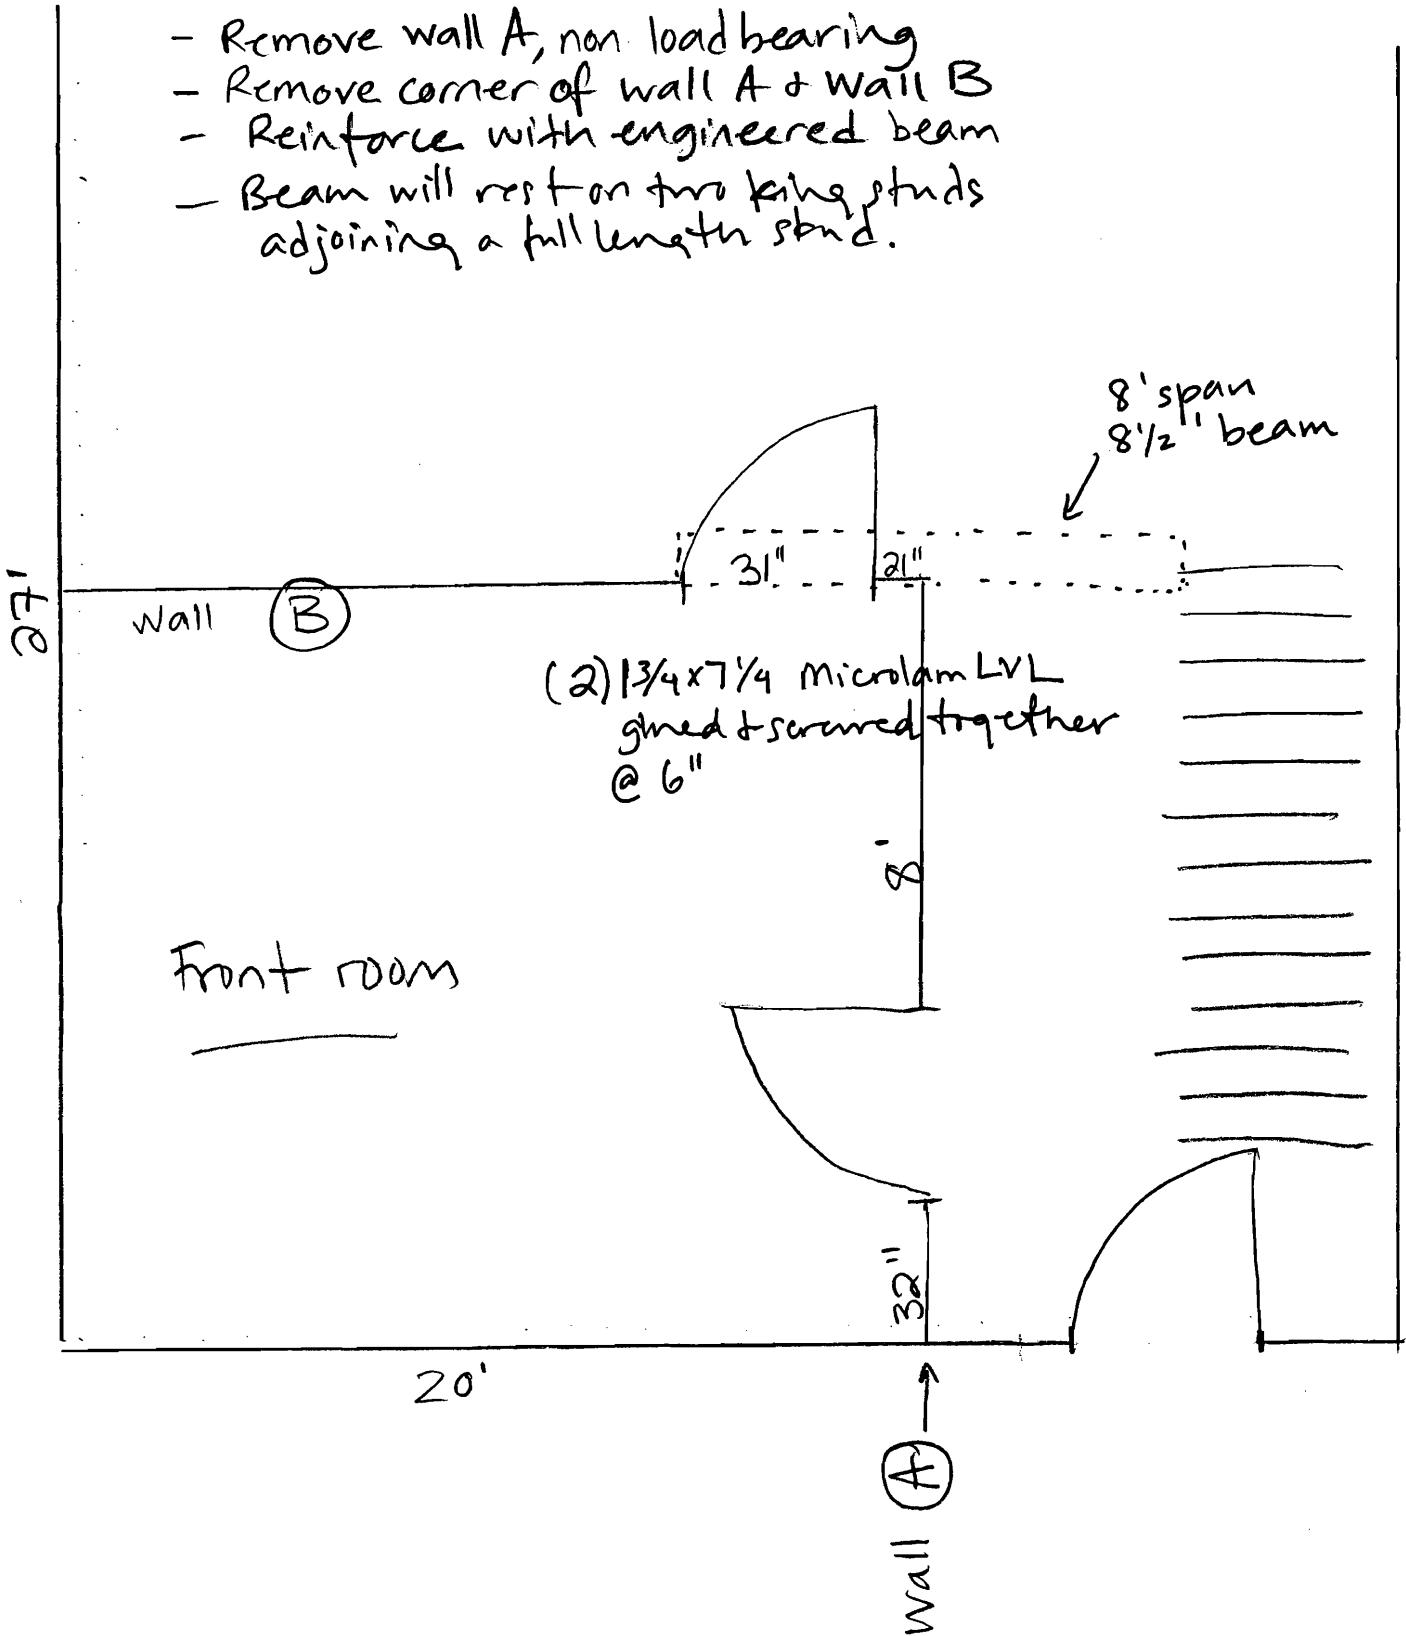 - Remove wall A, non load bearing
- Remove corner of wall A & Wall B
- Reinforce with engineered beam
- Beam will rest on two king studs
adjoining a full length stud.
8' span
8 1/2" beam
31"
21"
27'
Wall B
(2) 1 3/4 x 7 1/4 Microlam LVL
glued & screwed together
@ 6"
8'
Front room
32"
20'
Wall A